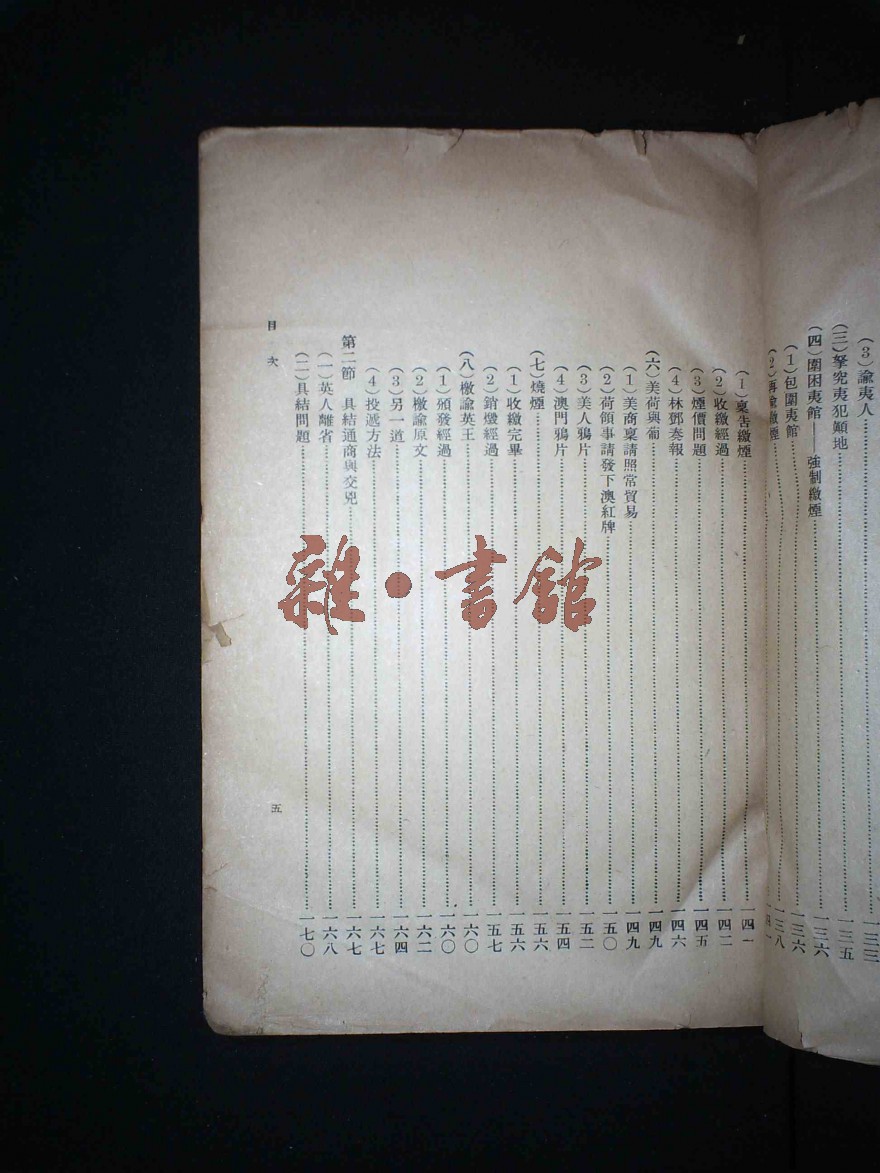 (3)諭夷人……一三三
(三)拏究夷犯顚地……一三五
(四)圍困夷館——強制繳煙……一三六
(1)包圍夷館……一三六
(2)再諭繳煙……一三八
(1)稟吿繳煙……一四一
(2)收繳經過……一四二
(3)煙價問題……一四五
(4)林鄧奏報……一四六
(六)美荷與葡……一四九
(1)美商稟請照常貿易……一四九
(2)荷領事請發下澳紅牌……一五〇
(3)美人鴉片……一五二
(4)澳門鴉片……一五四
(七)燒煙……一五六
(1)收繳完畢……一五六
(2)銷燬經過……一五七
(八)檄諭英王……一六〇
(1)頒發經過……一六〇
(2)檄諭原文……一六二
(3)另一道……一六四
(4)投遞方法……一六七
第二節 具結通商與交兇……一六七
(一)英人離省……一六八
(二)具結問題……一七〇
目次
五
雜·書館